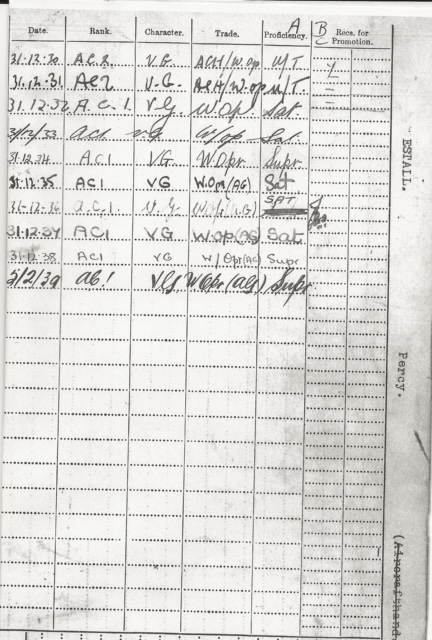 A B
Date. Rank. Character. Trade. Proficiency. Recs. for Promotion.
31.12.30 AC2 V.G. ACH/W.Op U/T
31.12.31 AC2 V.G. ACH/W.Op U/T
31.12.32 A.C.1. VG W/OP Sat.
31/12/33 AC1 VG W/Op Sat
31.12.34 AC1 VG W.Opr. Supr.
31.12.35 AC1 VG W.Opr(AG) Sat
31-12-36 A.C.1 V.G. SAT
31.12.37 AC1 VG W.Op(AG) Sat
31.12.38 AC1 VG W/Opr(AG) Supr
5/2/39 AC1 VG W Opr (AG) Supr
ESTALL.
Percy.
(Aircrafthand